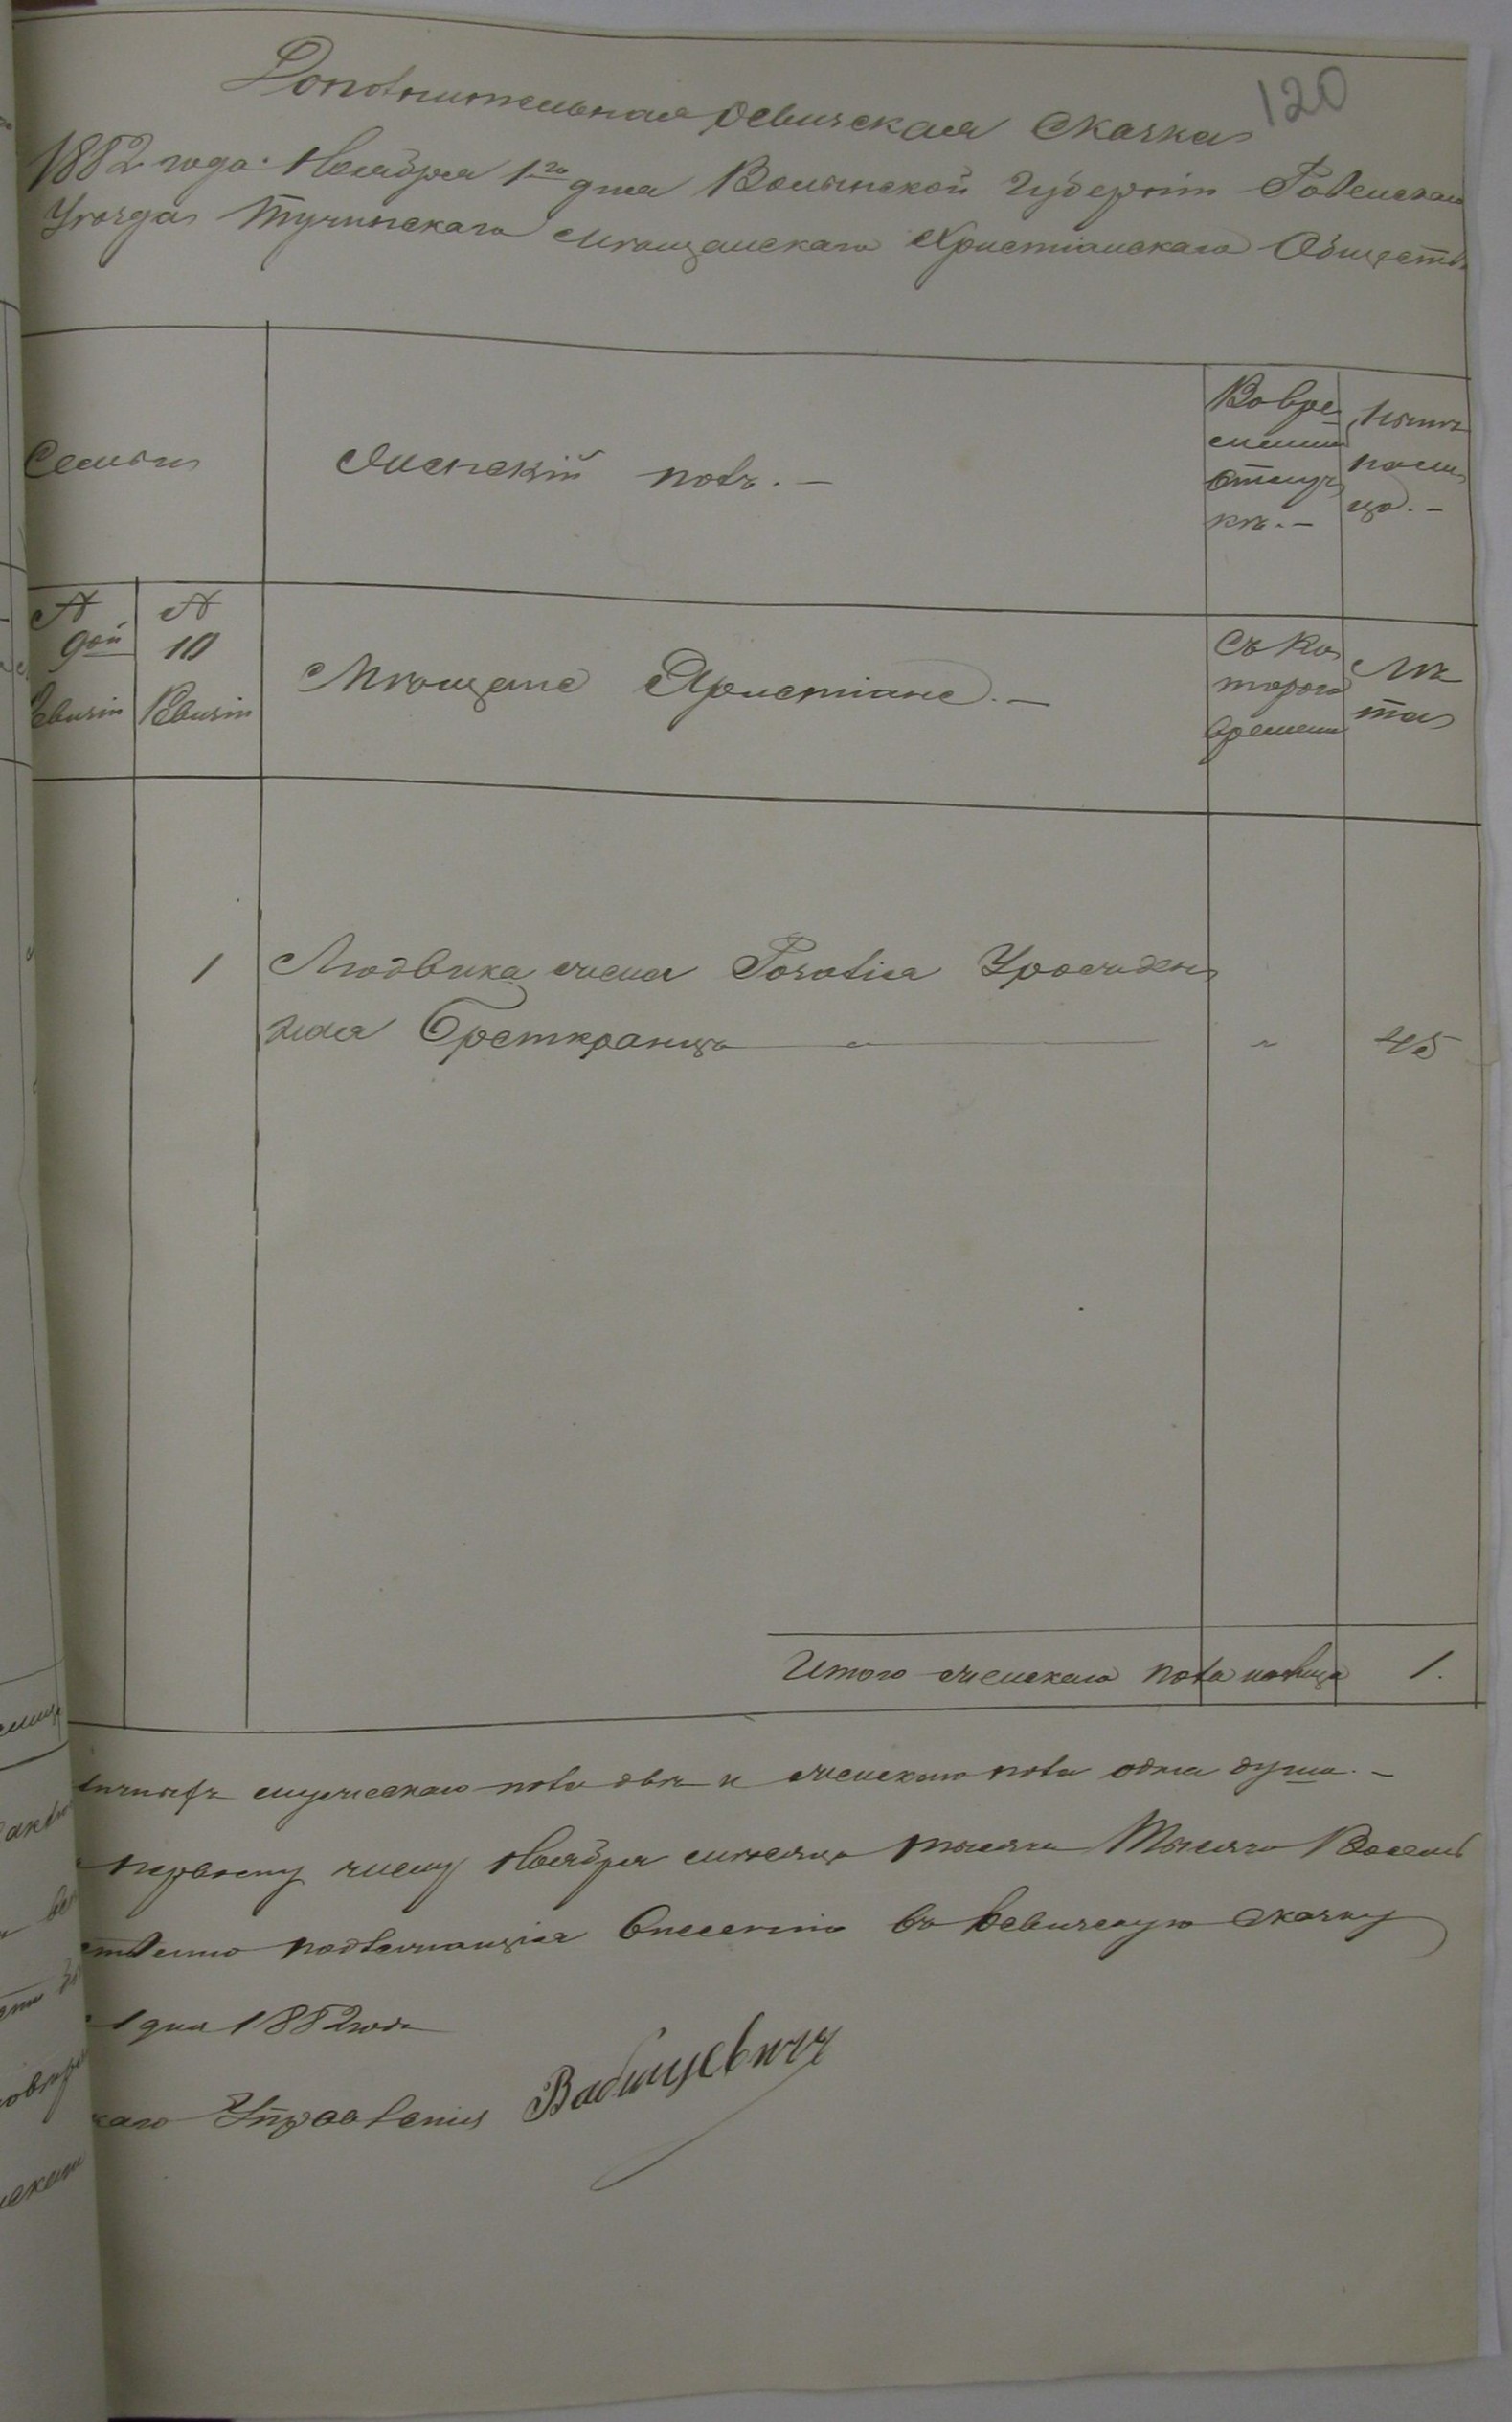 Дополнительная Ревизская Сказка
120
1882 года Ноября 1го дня Волынской Губерніи Ровенскаго
Уѣзда Тучинскаго Мѣщанскаго Христіанскаго Общества
Семьи
Женскій полъ. —
Во вре-
менной
отлуч
кѣ. —
Нынѣ
на ли
цо. —
№
9ой
Ревизіи
№
10
Ревизіи
Мѣщане Христіане. —
Съ ко
тораго
времени
Лѣ
та
1
Людвика жена Рожден
ная
"
45
Итого женскаго пола налицо 1.
мужескаго пола двѣ и женскаго пола одна душа. —
первому числу Ноября мѣсяца тысяча Восемь
внесенію въ Ревизскую Сказку
1 дня 1882 года
каго Управленія